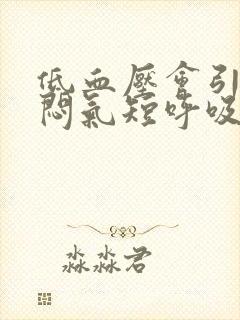 低血壓會引
悶氣短呼吸
淼淼君